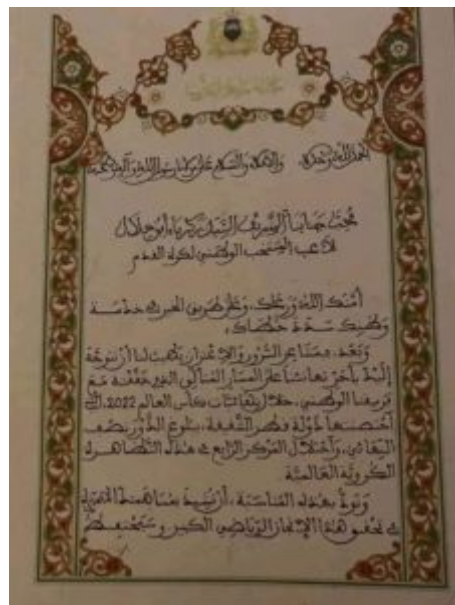 الحمد لله وحده، والصلاة والسلام على مولانا رسول الله وآله وصحبه
محبنا جنابنا الشريف السيد زكرياء أبو خلال
لاعب المنتخب الوطني لكرة القدم
أمنك الله ورعاك، وعلى طريق الخير في خدمة
وطنك سدد خطاك،
وبعد، فمشاعر السرور والاعتزاز يطيب لنا أن نتوجه
إليك بأحر تهانئنا على المسار المتألق الذي حققته مع
فريقنا الوطني، خلال نهائيات كأس العالم 2022، التي
احتضنتها دولة قطر الشقيقة، ببلوغ الدور نصف
النهائي، واحتلال المركز الرابع في هذه التظاهرة
الكروية العالمية.
ونود بهذه المناسبة، أن نشيد بمساهمتك
في تحقيق هذا الإنجاز الرياضي الكبير